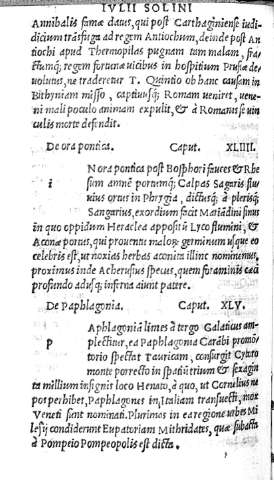 IVLII SOLINI
Annibalis famæ datus, qui post Carthaginiense iudi-
dicium trãsfuga ad regem Antiochum, deinde post An
tiochi apud Thermopilas pugnam tam malam, fra-
ctumq; regem fortunæ uicibus in hospitium Prusiæ de-
uolutus, ne traderetur T. Quintio ob hanc causam in
Bithyniam misso, captiuusq; Romam ueniret, uene-
ni mali poculo animam expulit, & à Romanis se uin
culis morte defendit.
De ora pontica. Caput. XLIIII.
N ora pontica post Bosphori fauces & Rhe
i sum amnẽ porumq; Calpas Sagaris flu
uius orus in Phrygia, dictusq; à plerisq;
Sangarius, exordium facit Mariãdini sinus
in quo oppidum Heraclea appositũ Lyco flumini, &
Aconæ porus, qui prouentu maloꝝ germinum usque eo
celebris est, ut noxias herbas aconita illinc nominemus,
proximus inde Acherusius specus, quem foraminis cæci
profundo adusq; inferna aiunt patere.
De Paphlagonia. Caput. XLV.
Aphlagoniã limes à tergo Galaticus am-
p plectitur, ea Paphlagonia Carãbi promõ
torio spectat Tauricam, consurgit Cytoro
monte porrecto in spatiũ trium & sexagin
ta millium insignis loco Heneto, à quo, ut Cornelius ne
pos perhibet, Paphlagones in Italiam transuecti, mox
Veneti sunt nominati. Plurimas in ea regione urbes Mi
lesij condiderunt Eupatoriam Mithridates, quæ subacta
à Pompeio Pompeopolis est dicta.